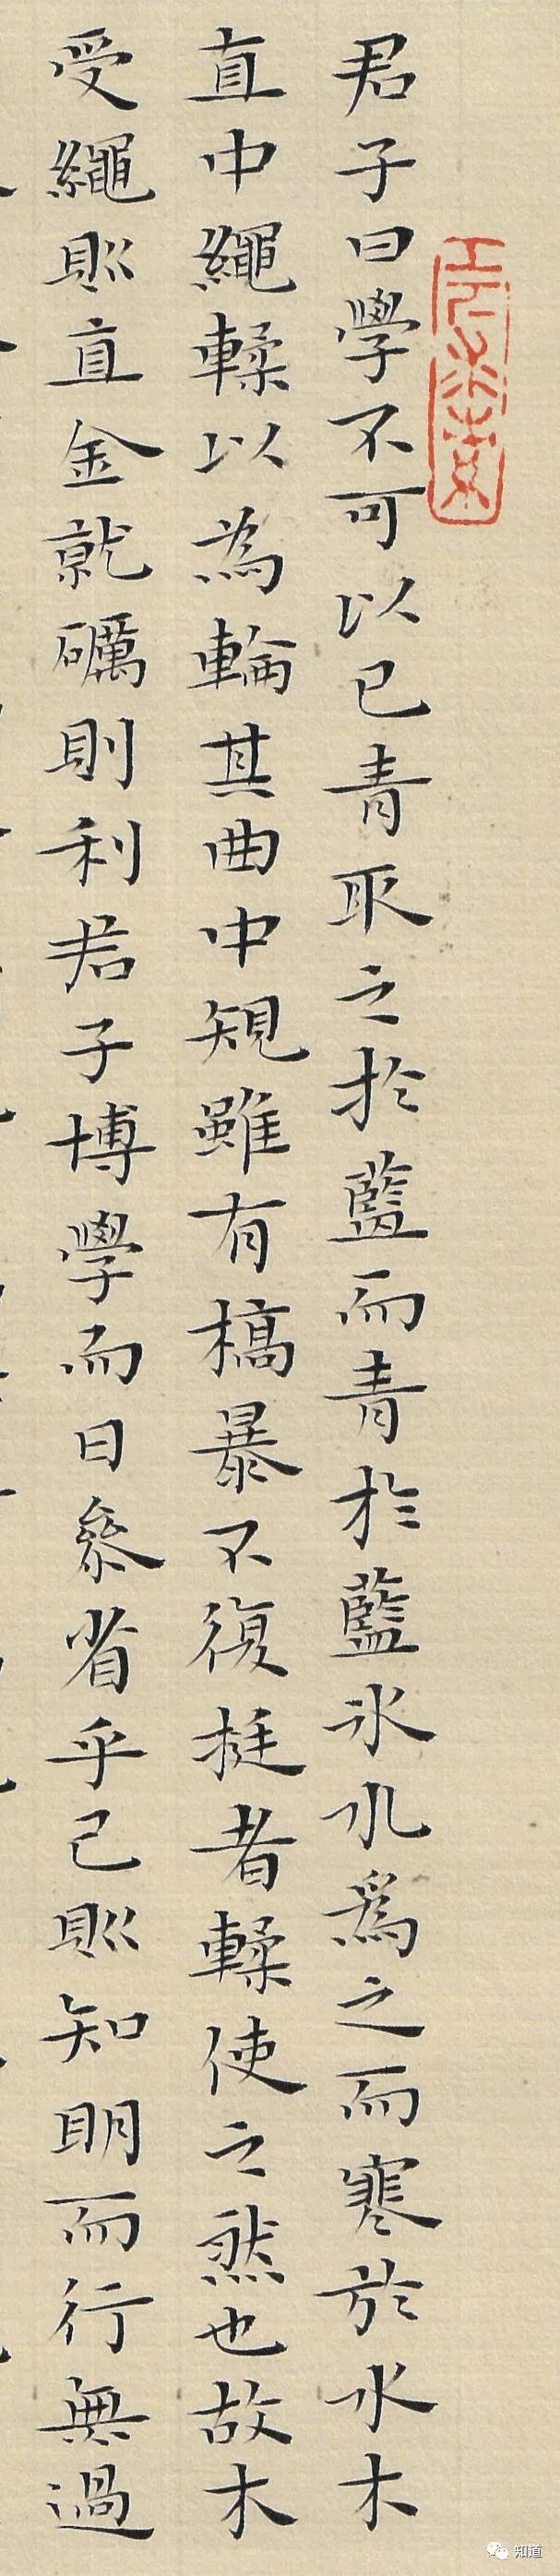 君子曰學不可以已青取之於藍而青於藍冰水爲之而寒於水木
直中繩輮以為輪其曲中規雖有槁暴不復挺者輮使之然也故木
受繩則直金就礪則利君子博學而日參省乎己則知明而行無過
知道